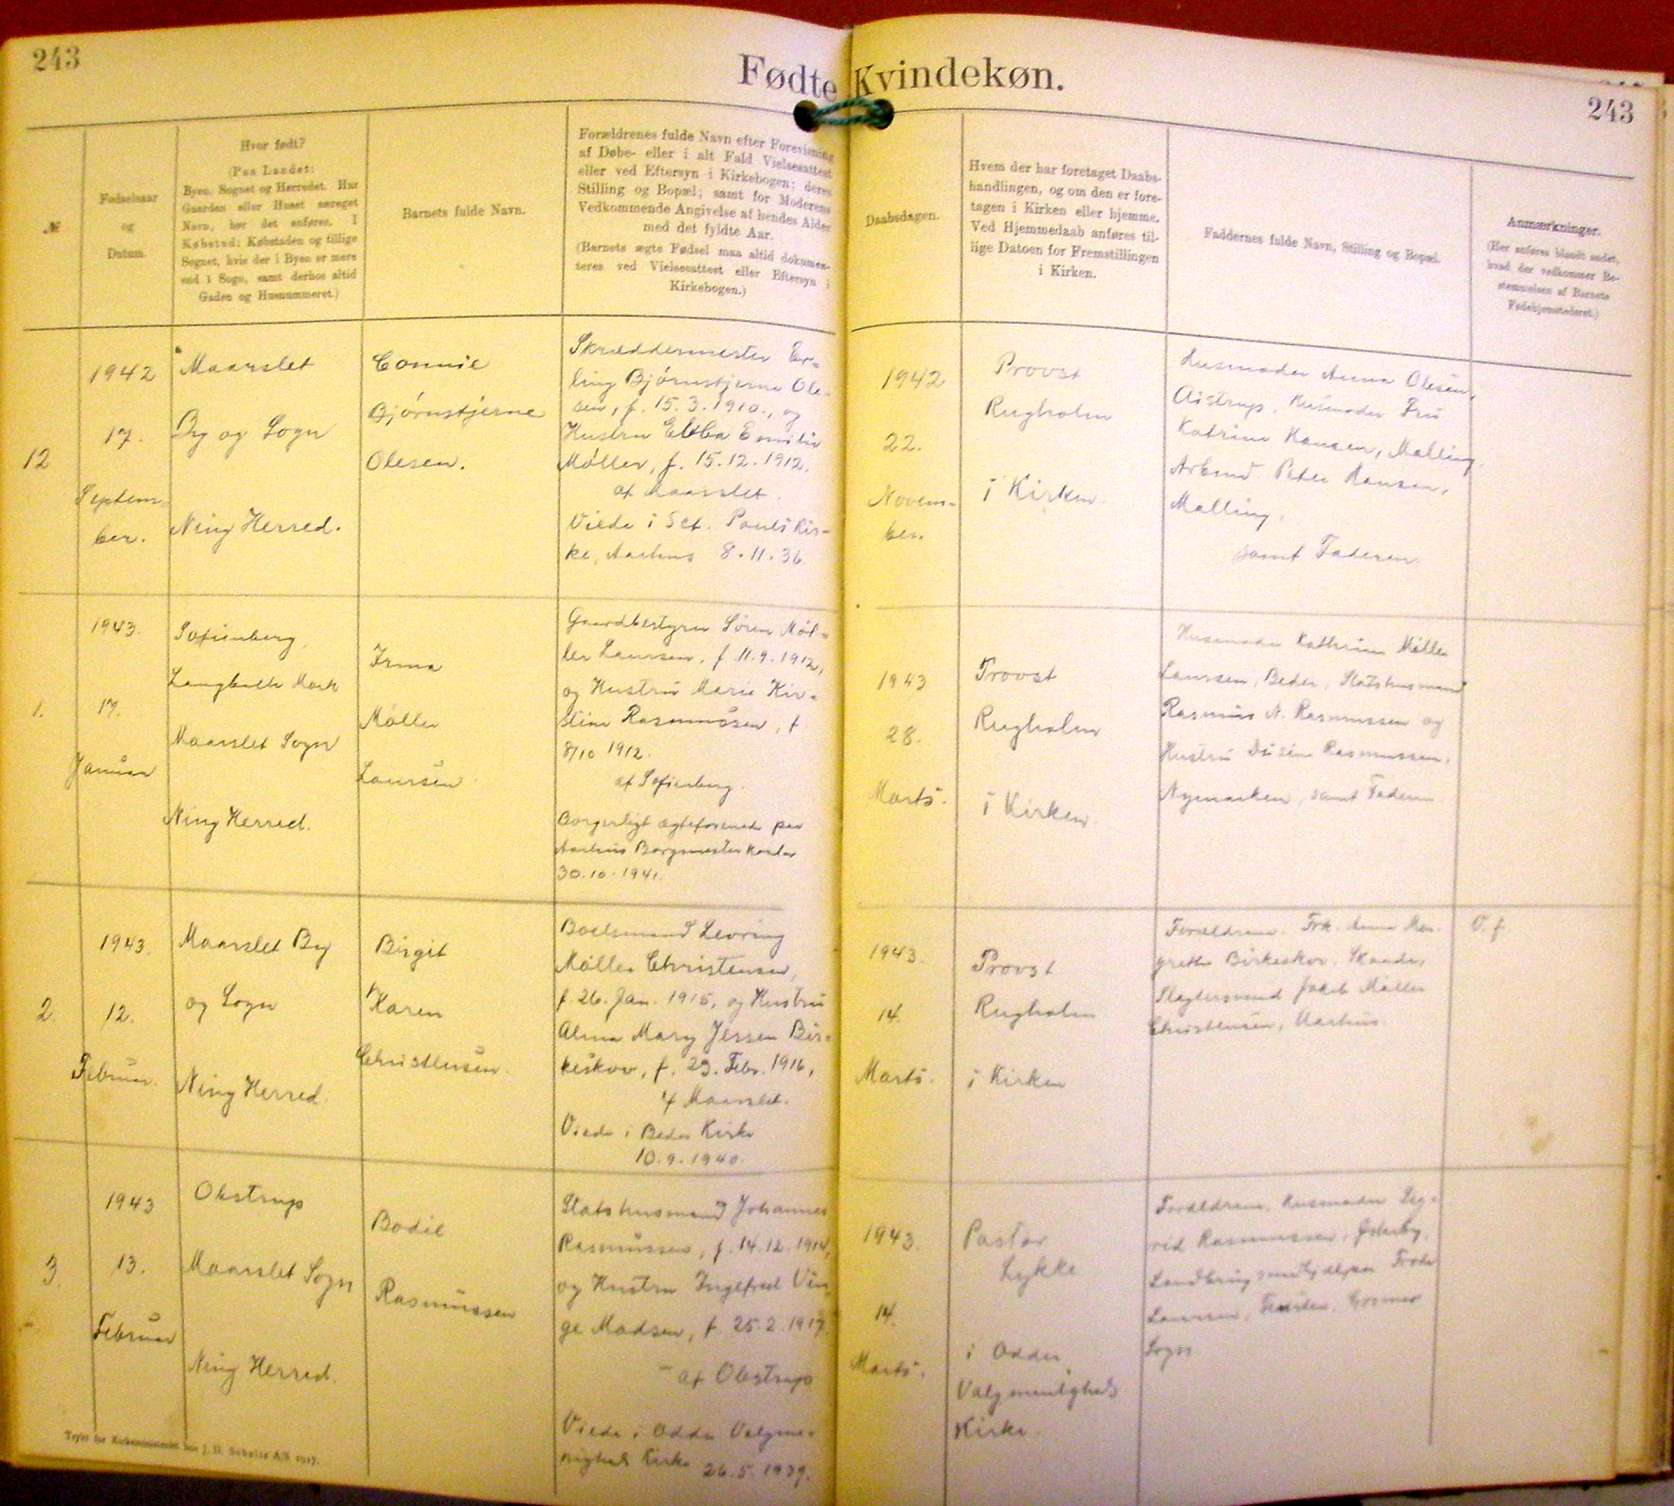 243
Fødte Kvindekøn.
243
№
Fødselsaar
og
Datum.
Hvor født?
(Paa Landet:
Byen, Sognet og Herredet. Har
Gaarden eller Huset særeget
Navn, bør det anføres. I
Købstad: Købstaden og tillige
Sognet, hvis der i Byen er mere
end 1 Sogn, samt derhos altid
Gaden og Husnummeret.)
Barnets fulde Navn.
Forældrenes fulde Navn efter Forevisning
af Døbe- eller i alt Fald Vielsesattest
eller ved Eftersyn i Kirkebogen; deres
Stilling og Bopæl; samt for Moderens
Vedkommende Angivelse af hendes Alder
med det fyldte Aar.
(Barnets ægte Fødsel maa altid dokumen-
teres ved Vielsesattest eller Eftersyn i
Kirkebogen.)
Daabsdagen.
Hvem der har foretaget Daabs-
handlingen, og om den er fore-
tagen i Kirken eller hjemme.
Ved Hjemmedaab anføres til-
lige Datoen for Fremstillingen
i Kirken.
Faddernes fulde Navn, Stilling og Bopæl.
Anmærkninger.
(Her anføres blandt andet,
hvad der vedkommer Be-
stemmelsen af Barnets
Fødehjemstederet.)
12
1942
17.
Septem-
ber.
Maarslet
By og Sogn
Ning Herred.
Connie
Bjørnstjerne
Olesen.
Skræddermester Er-
ling Bjørnstjerne Ole-
sen, f. 15.3.1910., og
Hustru Ebba Emilie
Møller, f. 15.12.1912.
af Maarslet.
Viede i Sct. Pauls Kir-
ke, Aarhus 8.11.36
1942
22.
Novem-
ber.
Provst
Rugholm
i Kirken.
Husmoder Anna Olesen,
Aistrup, Husmoder Fru
Katrine Hansen, Malling
Arbmd. Peter Hansen,
Malling,
samt Faderen.
1.
1943.
17.
Januar
Sofienberg,
Langballe Mark
Maarslet Sogn
Ning Herred.
Irma
Møller
Laursen
Gaardbestyrer Søren Møl-
ler Laursen, f. 11.9.1912,
og Hustru Marie Kir-
stine Rasmussen, f.
8/10 1912.
af Sofienberg.
Borgerligt ægteforenede paa
Aarhus Borgmesterkontor
30.10.1941.
1943
28.
Marts.
Provst
Rugholm
i Kirken.
Husmoder Kathrine Møller
Laursen, Beder, Statshusmand
Rasmus N. Rasmussen og
Hustru Dusine Rasmussen,
Nymarken, samt Faderen
2.
1943.
12.
Februar.
Maarslet By
og Sogn
Ning Herred.
Birgit
Karen
Christensen.
Boelsmand Levring
Møller Christensen,
f. 26. Jan. 1915, og Hustru
Alma Mary Jessen Bir-
keskov, f. 23. Febr. 1916,
af Maarslet.
Viede i Beder Kirke
10.9.1940.
1943.
14.
Marts.
Provst
Rugholm
i Kirken
Forældrene. Frk. Anna Mar-
grethe Birkeskov, Skaade,
Slagtersvend Jakob Møller
Christensen, Aarhus.
V. f.
3.
1943
13.
Februar
Obstrup
Maarslet Sogn
Ning Herred.
Bodil
Rasmussen
Statshusmand Johannes
Rasmussen, f. 14.12.1914,
og Hustru Ingefred Vin-
ge Madsen, f. 25.2.1917
- af Obstrup
Viede i Odder Valgme-
nigheds Kirke 26.5.1939.
1943.
14.
Marts.
Pastor
Lykke
i Odder
Valgmenigheds
Kirke.
Forældrene, Husmoder Sig-
rid Rasmussen, Østerby,
Landbrugsmedhjælper Frode
Laursen, Fensten, Gosmer
Sogn
Trykt for Kirkeministeriet hos J. H. Schultz A/S 1917.